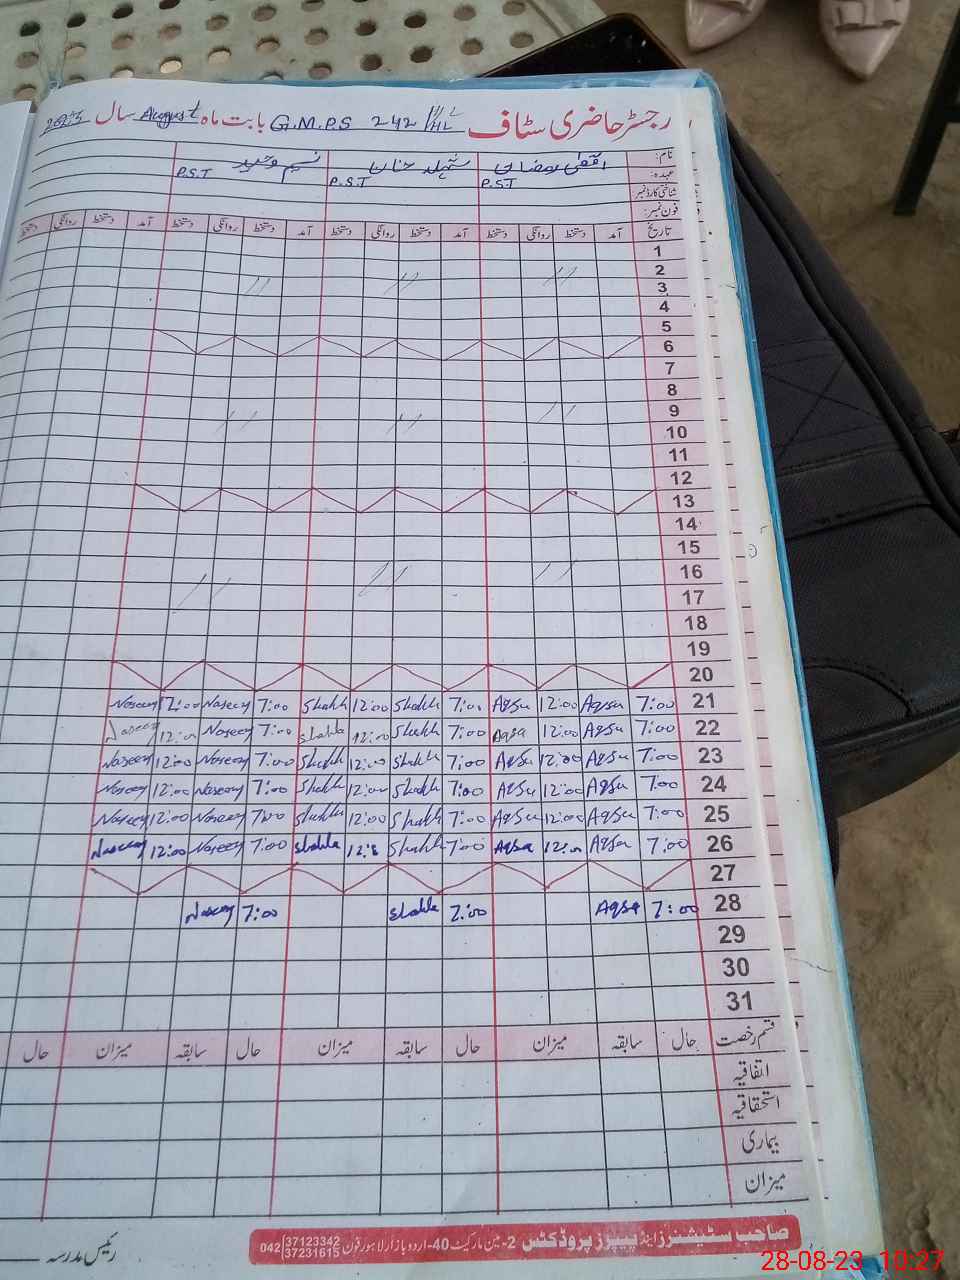 رجسٹر حاضری سٹاف G.M.P.S 242 بابت ماہ August سال 2023
نام: اقصٰی رمضان شہلہ خان نسیم وحید
عہدہ: P.S.T P.S.T P.S.T
شناختی کارڈ نمبر
فون نمبر:
تاریخ آمد دستخط روانگی دستخط آمد دستخط روانگی دستخط آمد دستخط روانگی دستخط آمد دستخط روانگی دستخط
1
2
3
4
5
6
7
8
9
10
11
12
13
14
15
16
17
18
19
20
21 7:00 Aqsa 12:00 Aqsa 7:00 Shahla 12:00 Shahla 7:00 Naseem 12:00 Naseem
22 7:00 Aqsa 12:00 Aqsa 7:00 Shahla 12:00 Shahla 7:00 Naseem 12:00 Naseem
23 7:00 Aqsa 12:00 Aqsa 7:00 Shahla 12:00 Shahla 7:00 Naseem 12:00 Naseem
24 7:00 Aqsa 12:00 Aqsa 7:00 Shahla 12:00 Shahla 7:00 Naseem 12:00 Naseem
25 7:00 Aqsa 12:00 Aqsa 7:00 Shahla 12:00 Shahla 7:00 Naseem 12:00 Naseem
26 7:00 Aqsa 12:00 Aqsa 7:00 Shahla 12:00 Shahla 7:00 Naseem 12:00 Naseem
27
28 7:00 Aqsa 7:00 Shahla 7:00 Naseem
29
30
31
قسم رخصت حال سابقہ میزان حال سابقہ میزان حال سابقہ میزان حال
اتفاقیہ
استحقاقیہ
بیماری
میزان
صاحب سٹیشنرز اینڈ پیپرز پروڈکٹس 2-مین مارکیٹ 40-اردو بازار لاہور فون 042 37123342 37231615
رئیس مدرسہ
28-08-23 10:27